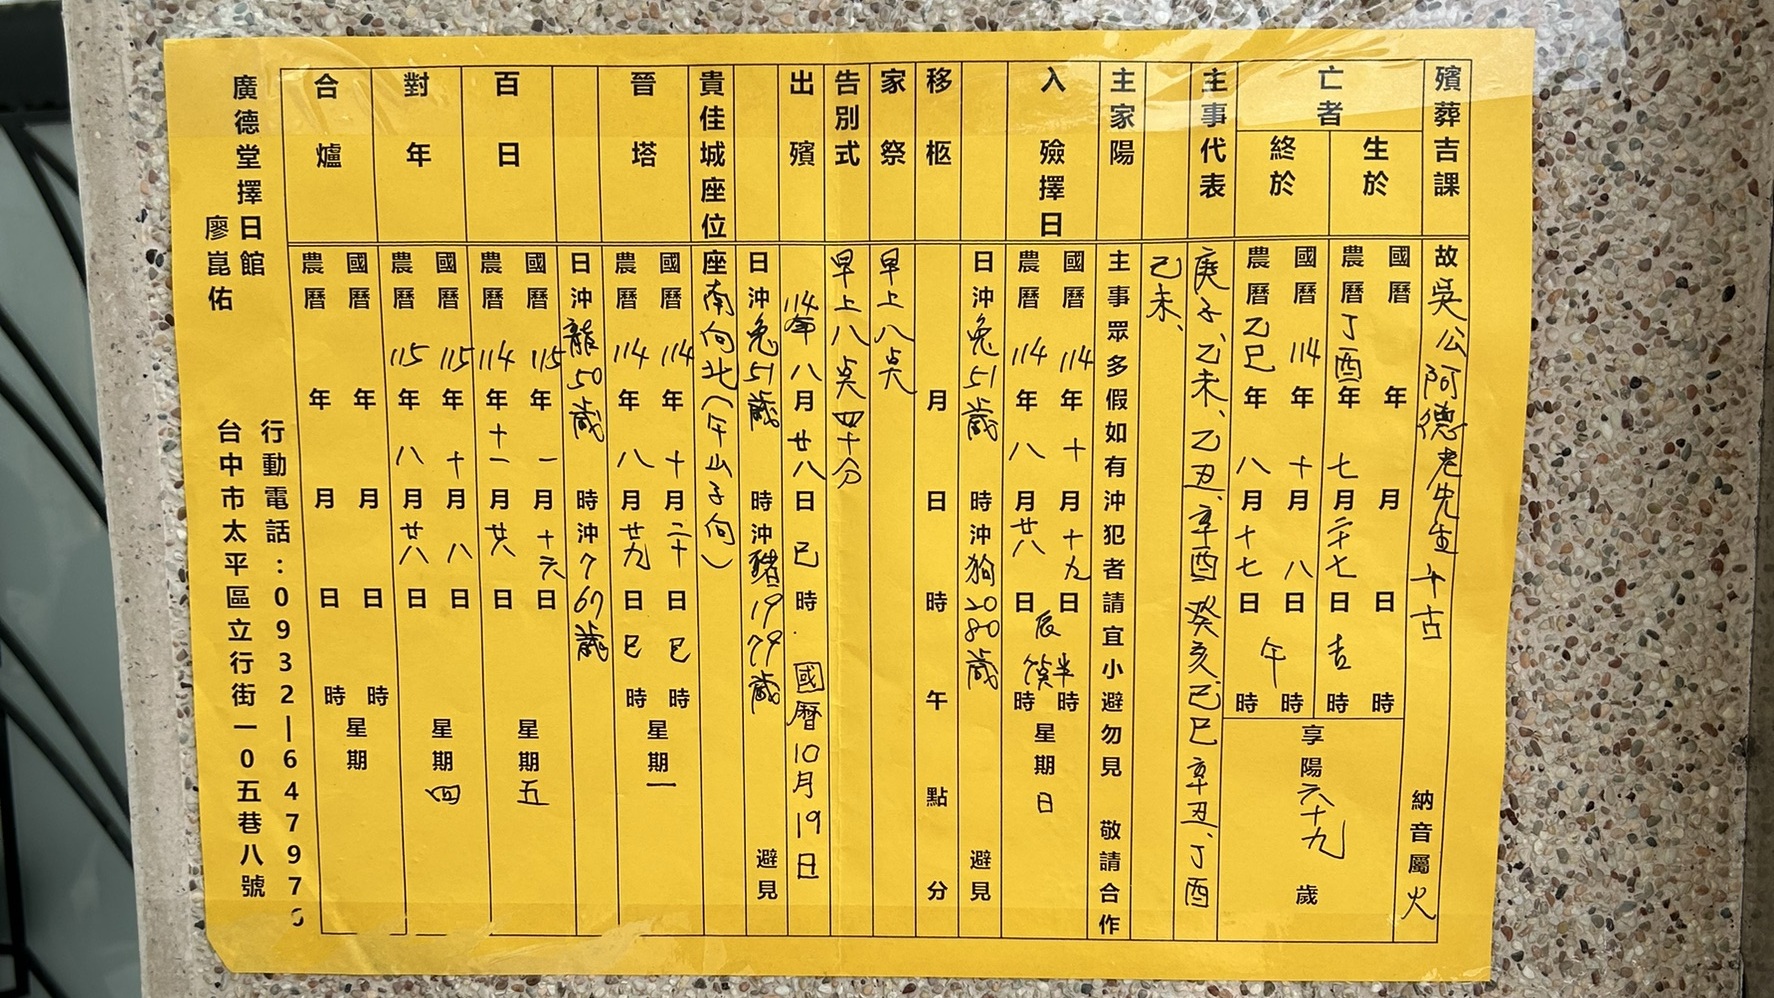 殯葬吉課 故吳公阿德老先生千古 納音屬火
亡者
生於 國曆 年 月 日 時
農曆丁酉年七月二十七日吉時
終於 國曆114年十月八日 時
農曆乙巳年八月十七日午時
享陽六十九歲
主事代表 庚子、乙未、乙丑、辛酉 癸亥 己巳 辛丑、丁酉
己未、
主家陽 主事眾多假如有沖犯者請宜小避勿見 敬請合作
入殮擇日 國曆114年十月十九日 時
農曆114年八月廿八日辰 時
星期日
日沖兔51歲 時沖狗20 80歲 避見
移柩 月 日 時 午 點 分
家祭 早上八點
告別式 早上八點四十分
出殯 114年八月廿八日巳時 國曆10月19日
日沖兔51歲 時沖豬19 79歲 避見
貴佳城座位 座南向北(午山子向)
晉塔 國曆114年十月二十日巳時
農曆114年八月廿九日巳時
星期一
日沖龍50歲 時沖7 67歲
百日 國曆115年一月十六日
農曆114年十一月廿八日
星期五
對年 國曆115年十月八日
農曆115年八月廿八日
星期四
合爐 國曆 年 月 日 時
農曆 年 月 日 時
星期
廣德堂擇日館 行動電話:0932-647979
廖崑佑 台中市太平區立行街一0五巷八號